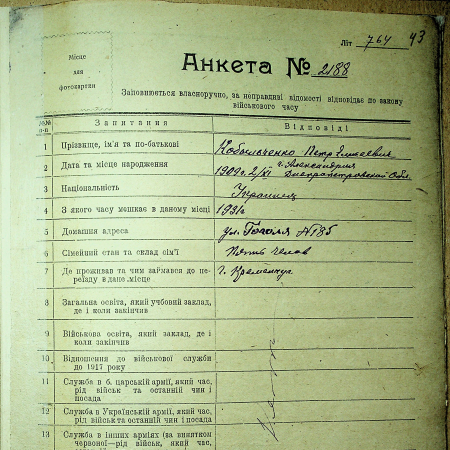 Літ 764 43
Місце
для
фотокартки
Анкета № 2188
Заповнюється власноручно, за неправдиві відомості відповідає по закону
військового часу
Запитання Відповіді
1 Прізвище, ім'я та по-батькові
2 Дата та місце народження г. Александрия
1909 г. 2/XI Днепропетровской Обл.
3 Національність Украинец
4 З якого часу мешкає в даному місці 1931 г
5 Домашня адреса ул. Гоголя №185
6 Сімейний стан та склад сім'ї Пять челов
7 Де проживав та чим займався до пе- г. Кременчуг
реїзду в дане місце
8 Загальна освіта, який учбовий заклад,
де і коли закінчив
9 Військова освіта, який заклад, де і
коли закінчив
10 Відношення до військової служби
до 1917 року
11 Служба в б. царській армії, який час,
рід військ та останній чин і
посада
12 Служба в Українській армії, який час,
рід військ та останній чин і посада
13 Служба в інших арміях (за винятком
червоної—рід військ, який час,